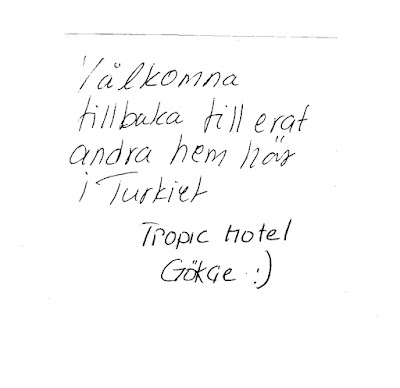 Vålkomna
tillbaka till erat
andra hem hår
i Turkiet
Tropic Hotel
Gökçe :)